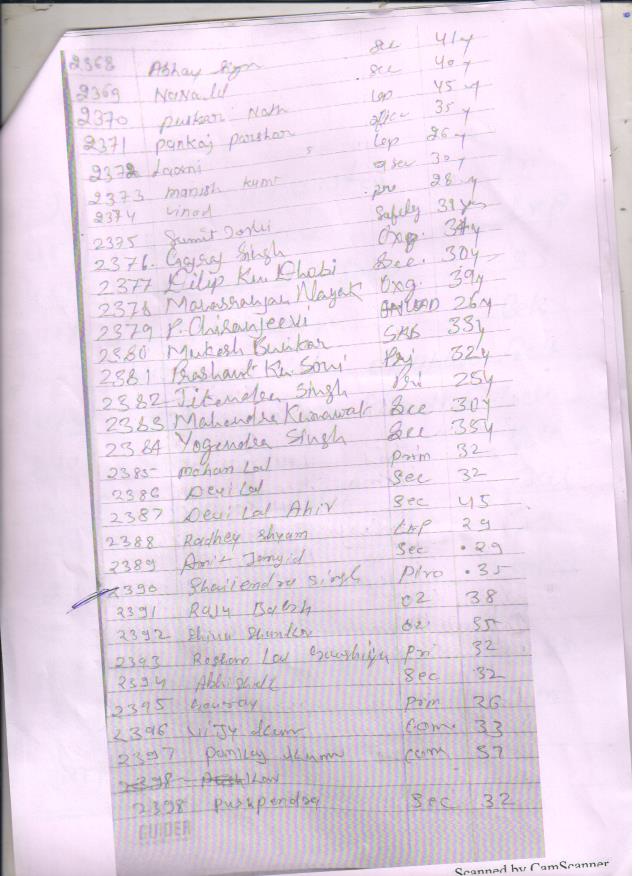 2368 Abhay Singn Sec 41 y
2369 Nanalal Sec 40 y
2370 pushkar Nath Lep 45 y
2371 pankaj parshar office 35 y
2372 Laxmi Lep 26 y
2373 manish kumr sec 30 y
2374 vinod pro 28 y
2375 Sumit Joshi Safely 39 yrs
2376. Gajraj Singh Oxg. 34y
2377 Dilip Kr Dhobi Sec. 30y
2378 Manasranjan Nayak Oxg. 39y
2379 P. Chiranjeevi 26y
2380 Mukesh Bunkar SKB 33y
2381 Prashant Kr. Soni Pri 32y
2382 Jitendra Singh Pri 25y
2383 Mahendra Kumawat Sec 30y
2384 Yogendra Singh Sec 35y
2385 mohan Lal prim 32
2386 Devi Lal Sec 32
2387 Devi Lal Ahir Sec 45
2388 Radhey Shyam LEP 29
2389 Amit Jangid Sec . 29
2390 Shailendra Singh Pyro . 35
2391 Raju 02 38
2392 Shiva Shanker 02 55
2393 Roshan Lal Pri 32
2394 Abhishek Sec 32
2395 Gourav prim 26
2396 Vijy kum Com. 33
2397 pankaj kum com 57
2398
2398 pushpendra Sec 32
GUIDER
Scanned by CamScanner